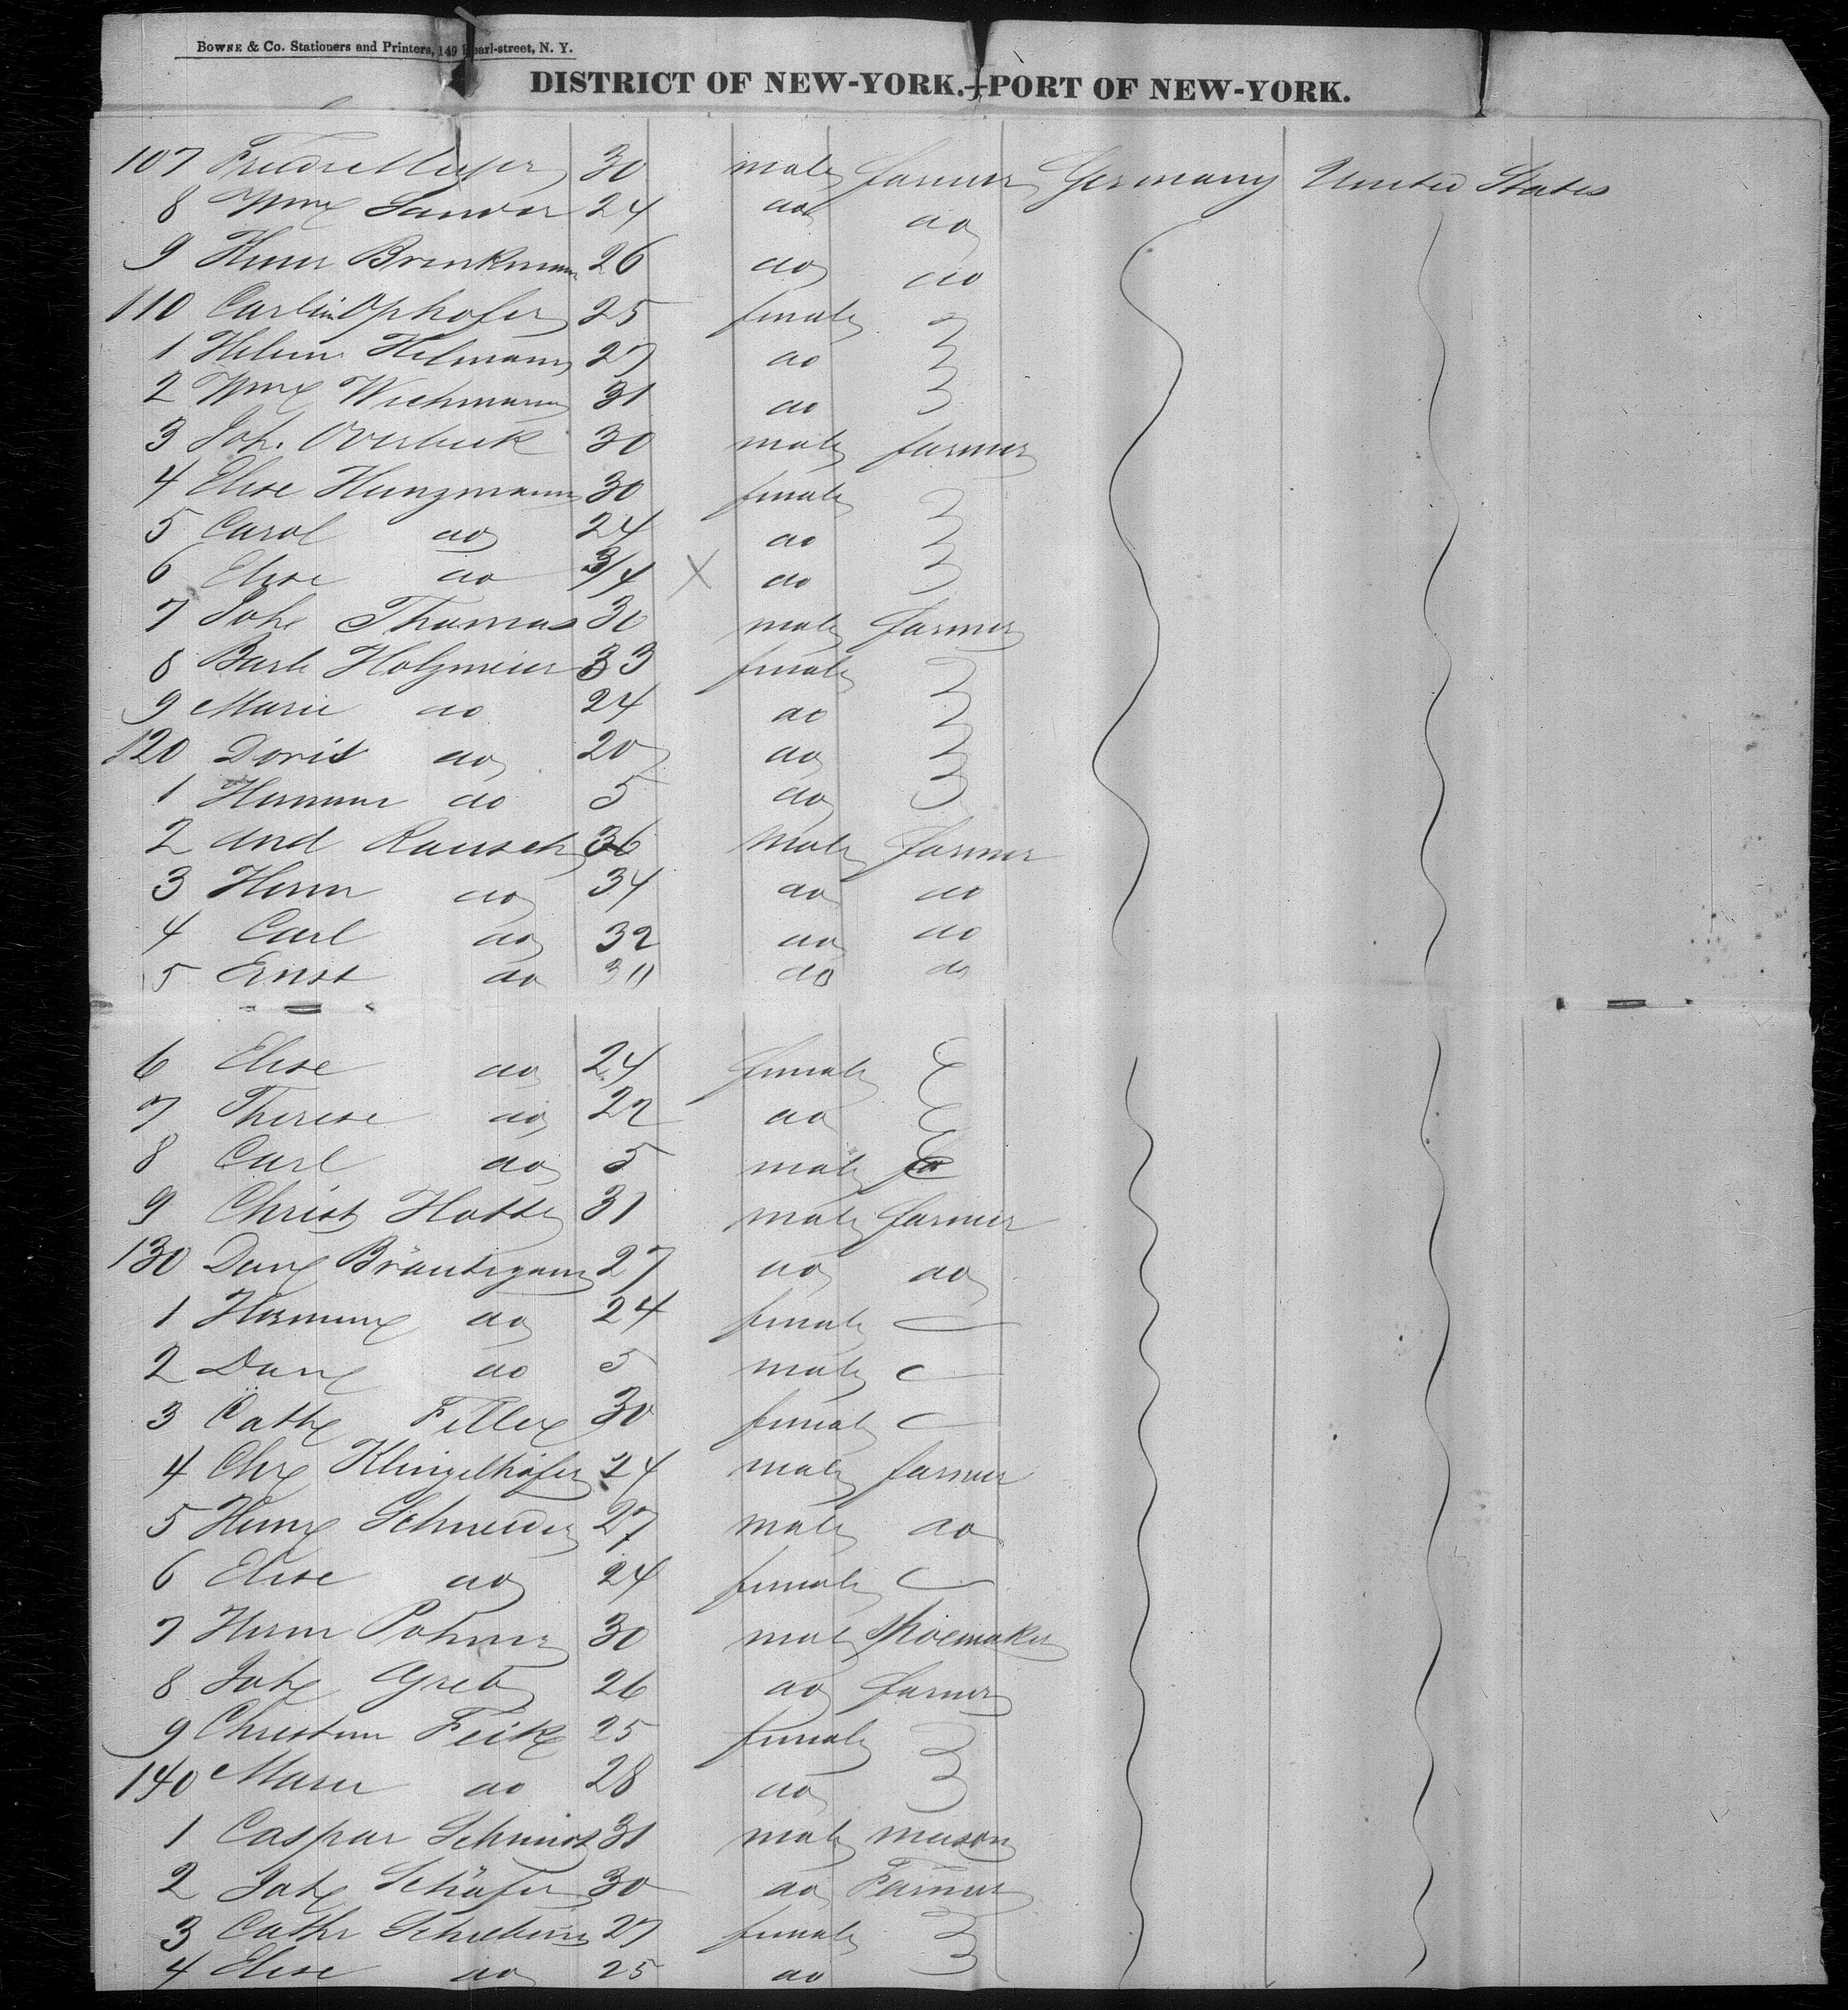 BOWNE & Co. Stationers and Printers, 149 Pearl-street, N. Y.
DISTRICT OF NEW-YORK.—PORT OF NEW-YORK.
107 30 male farmer Germany United States
8 Sander 24 do do
9 Brinkmann 26 do do
110 Ophofer 25 female
1 27 do
2 Wichmann 31 do
3 Joh. Overbeck 30 male farmer
4 Elise Hunzmann 30 female
5 Carol do 24 do
6 Elise do 3/4 X do
7 Joh Thomas 30 male farmer
8 Barb Holzmeier 33 female
9 Marie do 24 do
120 Doris do 20 do
1 do 5 do
2 And Rausch 36 male farmer
3 Herm do 34 do do
4 Carl do 32 do do
5 Ernst do 30 do do
6 Elise do 24 female
7 Therese do 22 do
8 Carl do 5 male
9 Christ Hotte 31 male farmer
130 Dan Bräutigam 27 do do
1 do 24 female
2 Dan do 5 male
3 Cath 30 female
4 Chr Klingelhöfer 24 male farmer
5 Schneider 27 male do
6 Elise do 24 female
7 Herm 30 male Shoemaker
8 Joh Greb 26 do farmer
9 Feik 25 female
140 Marie do 28 do
1 Caspar Schmidt 31 male mason
2 Joh Schäfer 30 do Farmer
3 Cath 27 female
4 Elise do 25 do